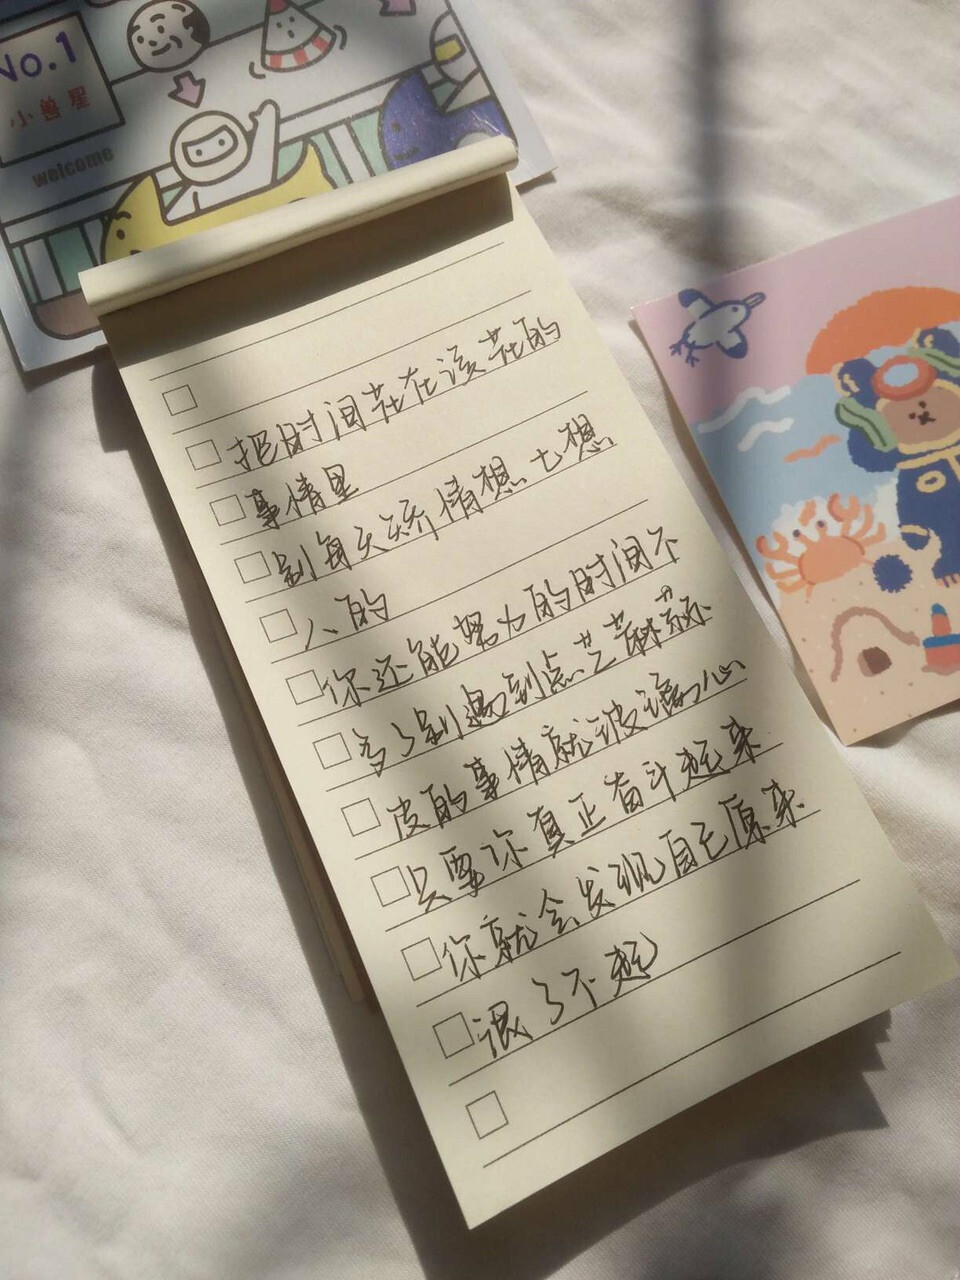 No.1
小兽星
welcome
把时间花在该花的
事情里
别每天矫情想七想
八的
你还能努力的时间不
多了别遇到点芝麻蒜
皮的事情就玻璃心
只要你真正奋斗起来
你就会发现自己原来
很了不起